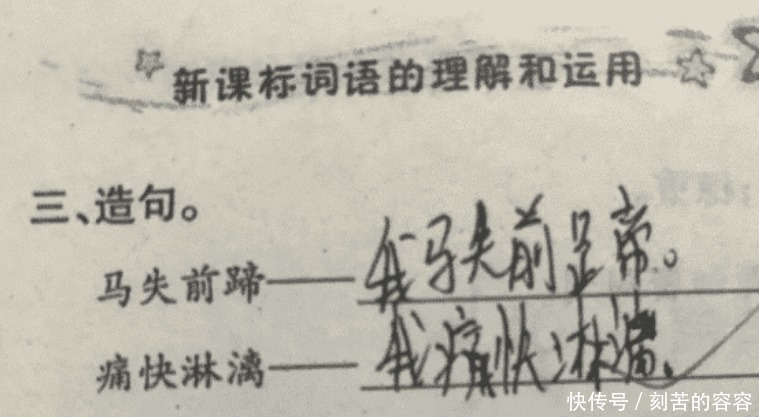 新课标词语的理解和运用
三、造句。
马失前蹄——我马失前足帝。
痛快淋漓——我痛快淋漓。
快传号/刻苦的容容